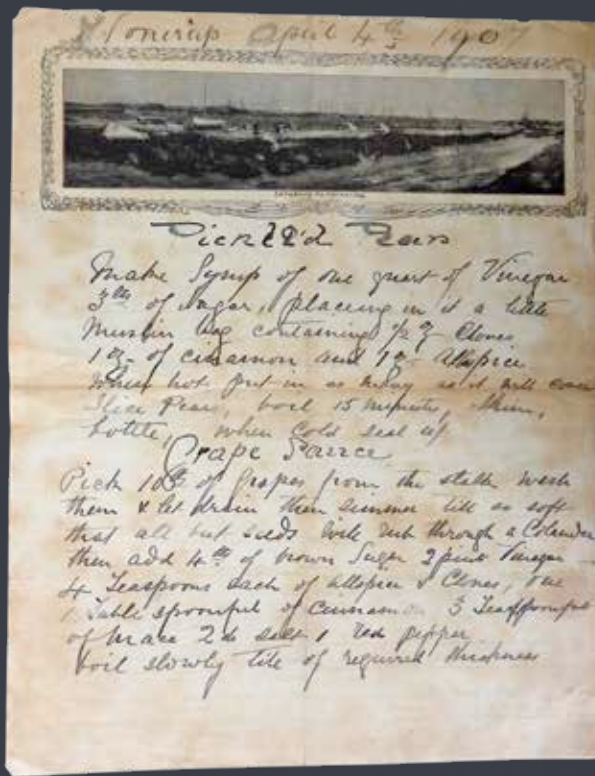 April 4th 1907
Pickle'd Pears
Make Syrup of one quart of Vinegar
3 lbs of sugar, placing in it a little
Muslin bag containing 1/2 oz Cloves
1 oz of cinnamon and 1 oz Allspice
When hot put in as many as it will cover
Slice Pears, boil 15 minutes, skim,
bottle, when cold seal up
Grape Sauce
Pick 10 lb of Grapes from the stalk wash
them & let drain then simmer till so soft
that all but seeds will rub through a Colander
then add 4 lb of brown Sugar pint Vinegar
4 Teaspoons each of allspice & Cloves, one
Table spoonful of Cinnamon 3 Teaspoonful
of Mace 2 do salt 1 red pepper
boil slowly till of required thickness